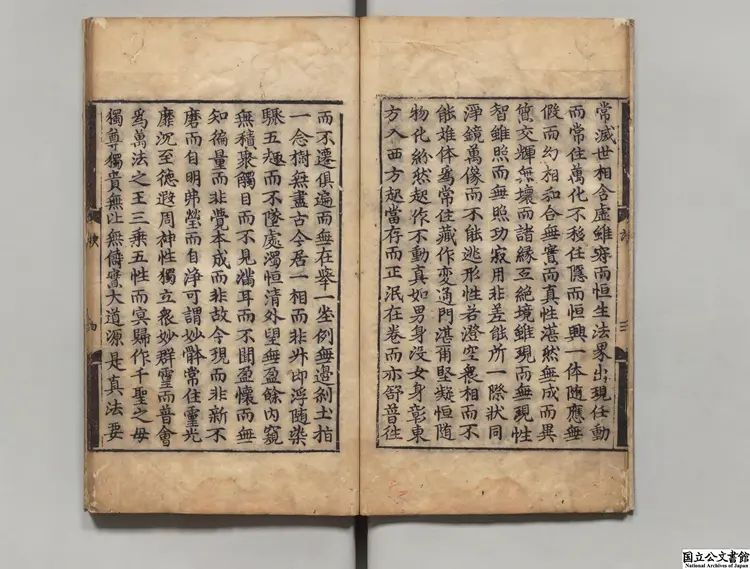 常滅世相含虛雖寂而恒生法界出現任動
而常住萬化不移任隱而恒興一体隨應無
假而幻相和合無實而真性湛然無成而異
質交輝無壞而諸緣互絶境雖現而無現性
智雖照而無照功寂用非差能所一際狀同
淨鏡萬像而不能逃形性若澄空衆相而不
能離体爲常住藏作變通門湛爾堅凝恒隨
物化紛然起作不動真如男身没女身彰東
方入西方起當存而正泯在卷而亦舒普徃
三
而不遷俱遍而無在舉一塵例無邊刹土指
一念樹無盡古今居一相而非升即浮隨染
驟五趣而不墜處濁恒清外望無盈餘内窺
無積聚觸目而不見滿耳而不聞盈懷而無
知徧量而非覺本成而非故今現而非新不
磨而自明弗瑩而自淨可謂妙體常住靈光
靡沉至德遐周神性獨立衆妙群靈而普會
爲萬法之王三乘五性而冥歸作千聖之母
獨尊獨貴無比無儔實大道源是真法要
国立公文書館
National Archives of Japan